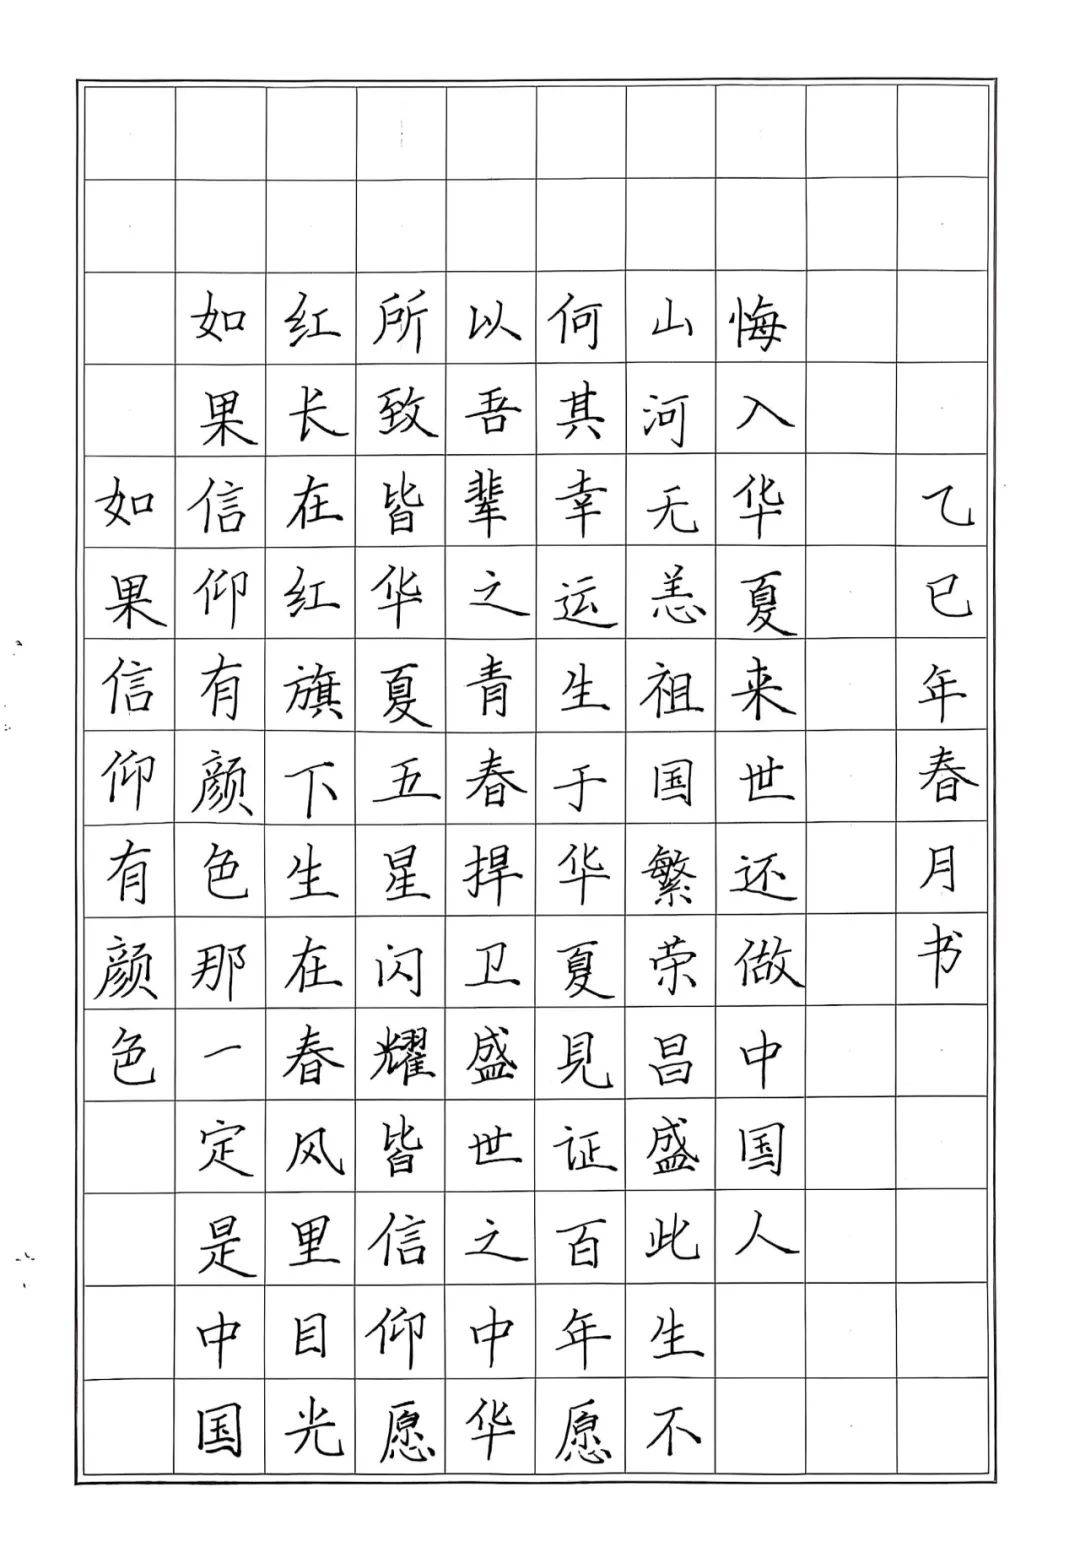 如果信仰有颜色
如果信仰有颜色那一定是中国
红长在红旗下生在春风里目光
所致皆华夏五星闪耀皆信仰愿
以吾辈之青春捍卫盛世之中华
何其幸运生于华夏見证百年愿
山河无恙祖国繁荣昌盛此生不
悔入华夏来世还做中国人
乙巳年春月书